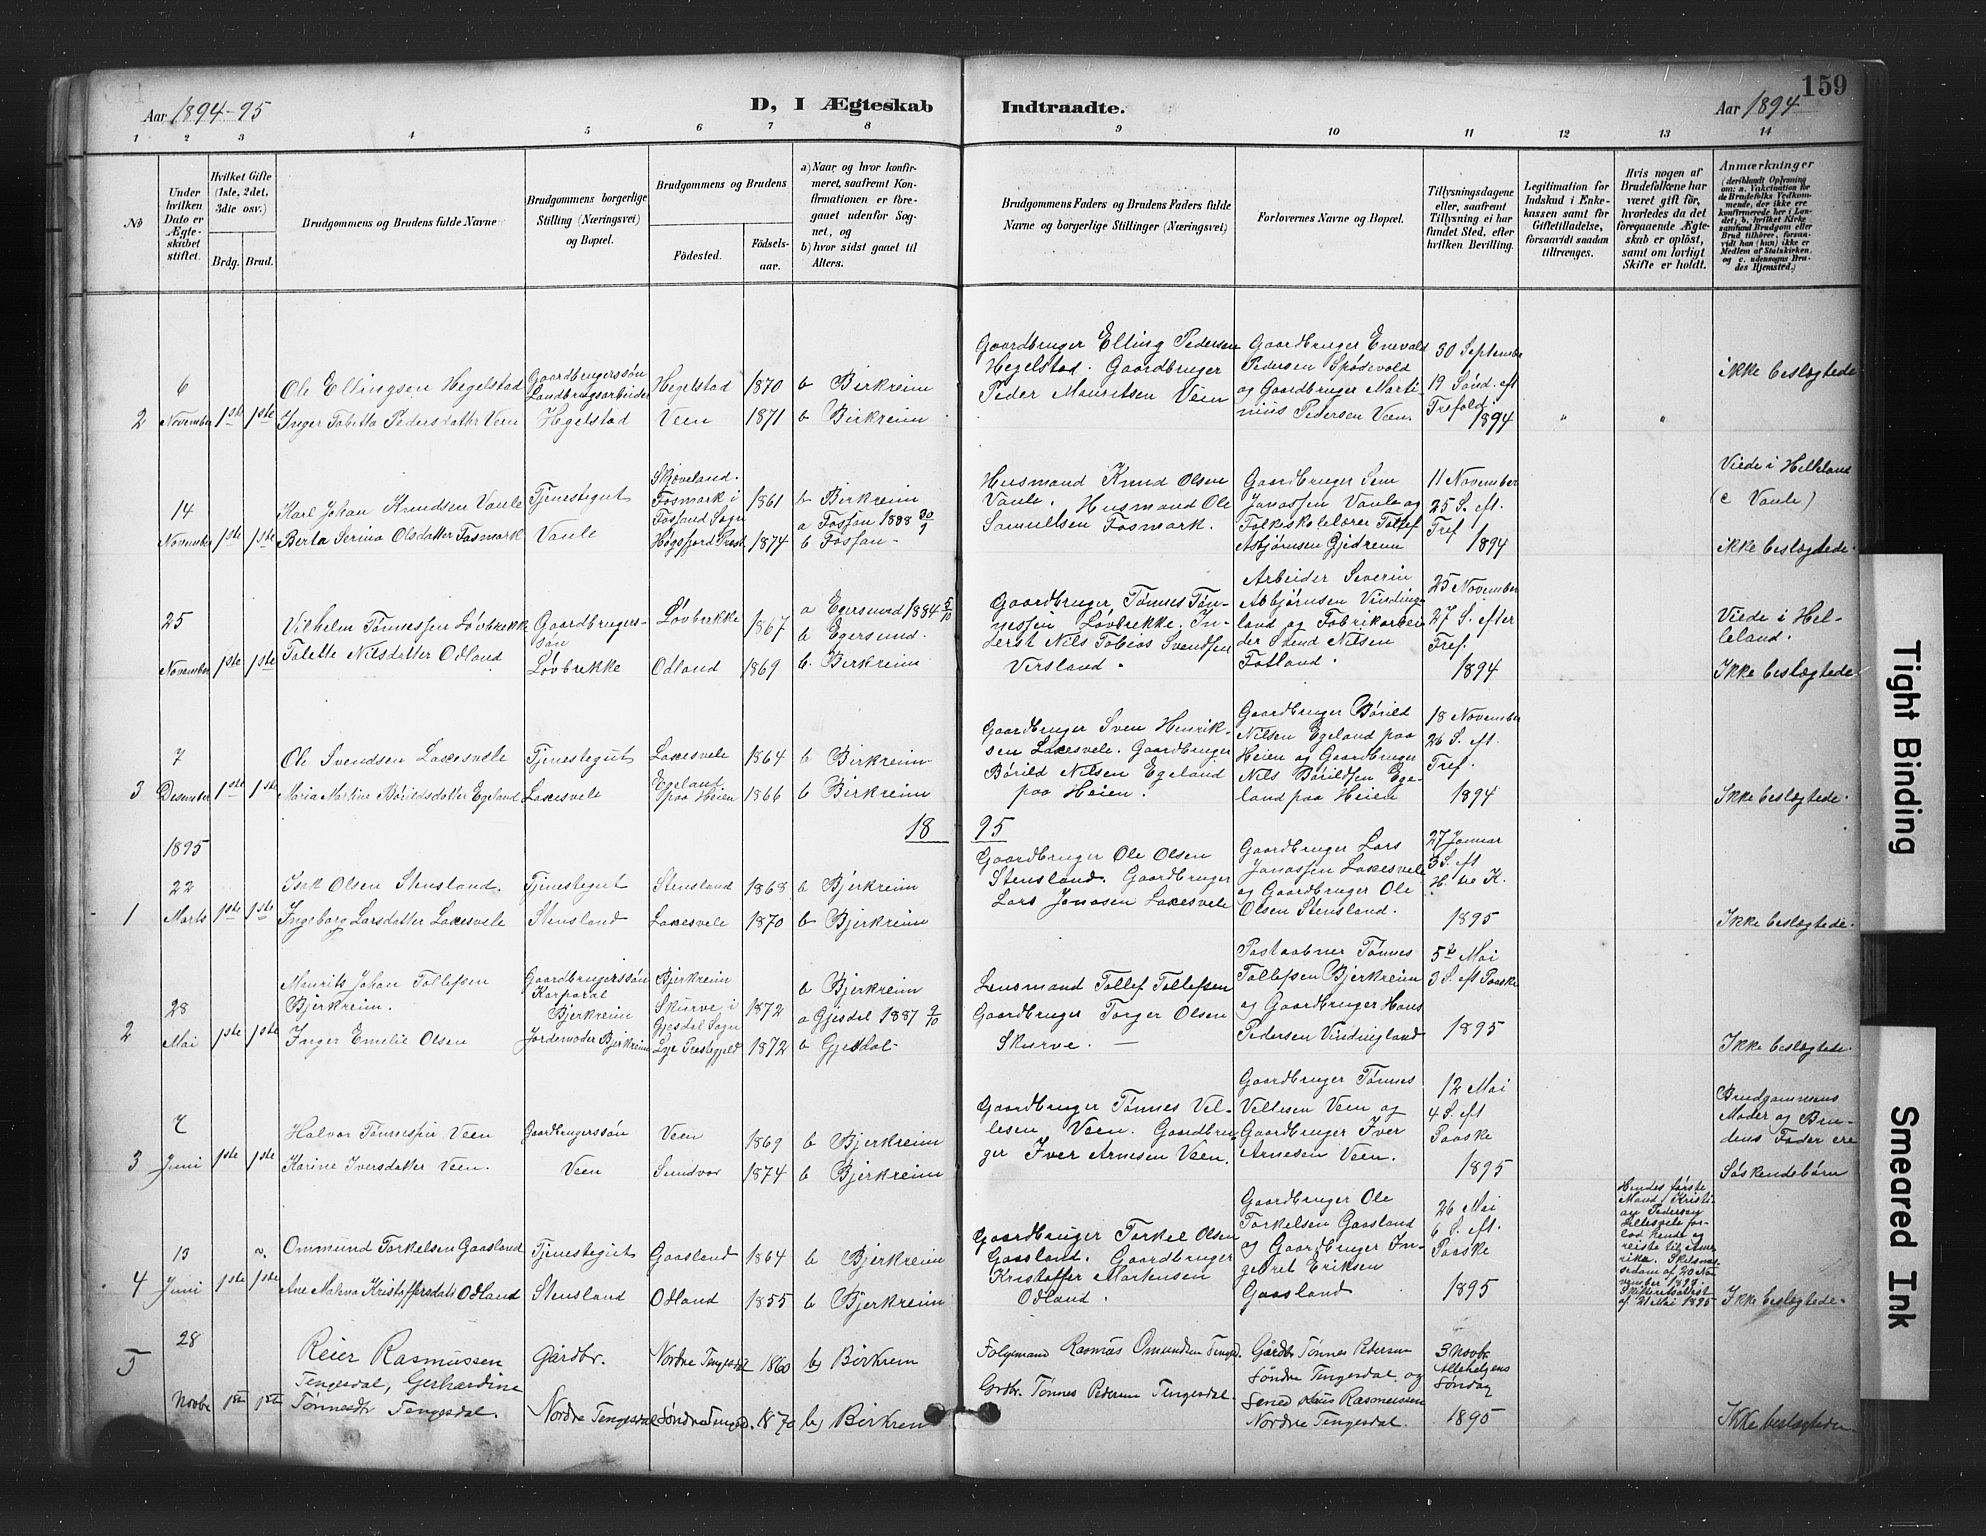 159
Aar 1894-95
D, I Ægteskab Indtraadte.
Aar 1894
1 2 3 4 5 6 7 8 9 10 11 12 13 14
№
Under hvilken Dato er Ægteskabet stiftet.
Hvilket Gifte (1ste, 2det, 3die osv.)
Brdg. Brud.
Brudgommens og Brudens fulde Navne
Brudgommens borgerlige Stilling (Næringsvei) og Bopæl.
Brudgommens og Brudens
Fødested.
Fødselsaar.
a) Naar og hvor konfirmeret, saafremt Konfirmationen er foregaaet udenfor Sognet, og
b) hvor sidst gaaet til Alters.
Brudgommens Faders og Brudens Faders fulde Navne og borgerlige Stillinger (Næringsvei)
Forlovernes Navne og Bopæl.
Tillysningsdagene eller, saafremt Tillysning ei har fundet Sted, efter hvilken Bevilling.
Legitimation for Indskud i Enkekassen samt for Giftetilladelse, forsaavidt saadan tiltrænges.
Hvis nogen af Brudefolkene har været gift før, hvorledes da det foregaaende Ægteskab er opløst, samt om lovligt Skifte er holdt.
Anmærkninger
(deriblandt Oplysning om: a. Vakcination for de Brudefolks Vedkommende, der ikke ere konfirmerede her i Landet; b. hvilket Kirkesamfund Brudgom eller Brud tilhører, forsaavidt han (hun) ikke er Medlem af Statskirken, og c. udensogns Brudes Hjemsted.)
2
6 November
1ste 1ste
Ole Ellingsen Hegelstad
Inger Tabetta Pedersdatter Veen
Gaardbrugerssøn
Landbrugsarbeider
Hegelstad
Hegelstad 1870 b Birkreim
Veen 1871 b Birkreim
Gaardbruger Elling Pedersen
Hegelstad. Gaardbruger
Peder Mauritsen Veen
Gaardbruger Enevald
Pedersen Spødevold
og Gaardbruger Marti-
nius Pedersen Veen.
30 September
19 Sønd. eft
Trefold.
1894
"
"
ikke beslægtede
14 November
1ste 1ste
Karl Johan Knudsen Vaule
Berta Serina Olsdatter Fosmark
Tjenestegut
Vaule
Skjøveland. 1861
Fosmark i
Fossand Sogn
Høgsfjord Præst. 1874
b Birkreim
a Fossan 1888 30/9
b Fossan-
Husmand Knud Olsen
Vaule. Husmand Ole
Samuelsen Fosmark.
Gaardbruger Sem
Janassen Vaule og
Folkeskolelærer Tollef
Asbjørnsen Gjedreim
11 November
25 S. eft.
Tref
1894
Viede i Helleland
(c Vaule)
ikke beslægtede.
25 November
1ste 1ste
Vilhelm Tønnessen Løvbrekke
Tolette Nilsdatter Odland
Gaardbrugers-
søn
Løvbrekke
Løvbrekke 1867
Odland 1869
a Egersund 1884 5/10
b Egersund.
b. Birkreim
Gaardbruger Tønnes Tøn-
nessen Løvbrekke. In-
derst Nils Tobias Svendsen
Virsland.
Arbeider Severin
Asbjørnsen Vinding-
land og Fabrikarbei-
der Svend Nilsen
Fotland.
25 November
27 S. efter
Tref.
1894
Viede i Hel-
leland.
Ikke beslægtede.
3
7 Desember
1ste 1ste
Ole Svendsen Laxesvele
Maria Martine Børildsdatter Egeland
Tjenestegut
Laxesvele
Laxesvele 1864 b Birkreim
Egeland
paa Heien 1866 b Birkreim
Gaardbruger Sven Henrik-
sen Laxesvele. Gaardbruger
Børild Nilsen Egeland
paa Heien.
Gaardbruger Børild
Nilsen Egeland paa
Heien og Gaardbruger
Nils Børildsen Ege-
land paa Heien
18 November
26 S. eft.
Tref.
1894
Ikke beslægtede.
18 95
1895
1
22 Marts
1ste 1ste
Isak Olsen Stensland.
Ingeborg Larsdatter Laxesvele
Tjenestegut
Stensland
Stensland 1868 b Bjerkreim
Laxesvele 1870 b Bjerkreim
Gaardbruger Ole Olsen
Stensland. Gaardbruger
Lars Janasen Laxesvele
Gaardbruger Lars
Janassen Laxesvele
og Gaardbruger Ole
Olsen Stensland.
27 Januar
3 S. eft
H. tre K.
1895
Ikke beslægtede.
2
28 Mai
1ste 1ste
Maurits Johan Tollefsen
Bjerkreim.
Inger Emelie Olsen
Gaardbrugerssøn
Korporal
Bjerkreim
Jordemoder Bjerkreim
Bjerkreim 1872
Skurve i
Gjesdal Sogn
Lye Præstegjeld 1872
b Bjerkreim
a Gjesdal 1887 9/10
b Gjesdal-
Lensmand Tollef Tollefsen
Gaardbruger Torger Olsen
Skurve. —
Postaabner Tønnes
Tollefsen Bjerkreim
og Gaardbruger Hans
Pedersen Vindingland
5te Mai
3 S. eft Paaske
1895
Ikke beslægtede.
3
7 Juni
1ste 1ste
Halvor Tønnessen Veen
Karine Iversdatter Veen.
Gaardbrugerssøn
Veen
Veen 1869 b Bjerkreim
Sundvor 1874 b Bjerkreim
Gaardbruger Tønnes Vil-
lesen Veen. Gaardbru-
ger Iver Arnesen Veen.
Gaardbruger Tønnes
Villesen Veen og
Gaardbruger Iver
Arnesen Veen.
12 Mai
4 S. eft
Paaske
1895
Brudgommens
Moder og Bru-
dens Fader ere
Søskendebørn
4
13 Juni
1ste 1ste
Ommund Torkelsen Gaasland
Ane Malena Kristoffersdatt Odland
Tjenestegut
Stensland
Gaasland 1864 b Bjerkreim
Odland 1855 b Bjerkreim
Gaardbruger Torkel Olsen
Gaasland. Gaardbruger
Kristoffer Mortensen
Odland.
Gaardbruger Ole
Torkelsen Gaasland
og Gaardbruger In-
gebret Eriksen
Gaasland
26 Mai
6 S. eft.
Paaske
1895
Hendes første
Mand Kristi-
an Pedersen
Lillesvele for-
lod hende og
reiste til Ame-
rika. Skilsmis-
sedom af 20 No-
vember 1892.
Skifteretsattest
af 21 Mai 1895
Ikke beslægtede.
5
28 Novbr
1ste 1ste
Reier Rasmussen
Tengesdal, Gerhardine
Tønnesdtr Tengesdal.
Gårdbr.
Nordre Tengesdal
Nordre Tengesdal 1860 b) Birkrem
Søndre Tengesd. 1870 b) Birkrem
Følgemand Rasmus Omundsen Tengesd.
Grdbr. Tønnes Pedersen Tengesdal.
Gårdbr Tønnes Pedersen
Søndre Tengesdal og
Rasmussen
Nordre Tengesdal.
3 Novbr.
Allehelgens
Søndag
1895
Ikke beslægtede.
Tight Binding
Smeared Ink